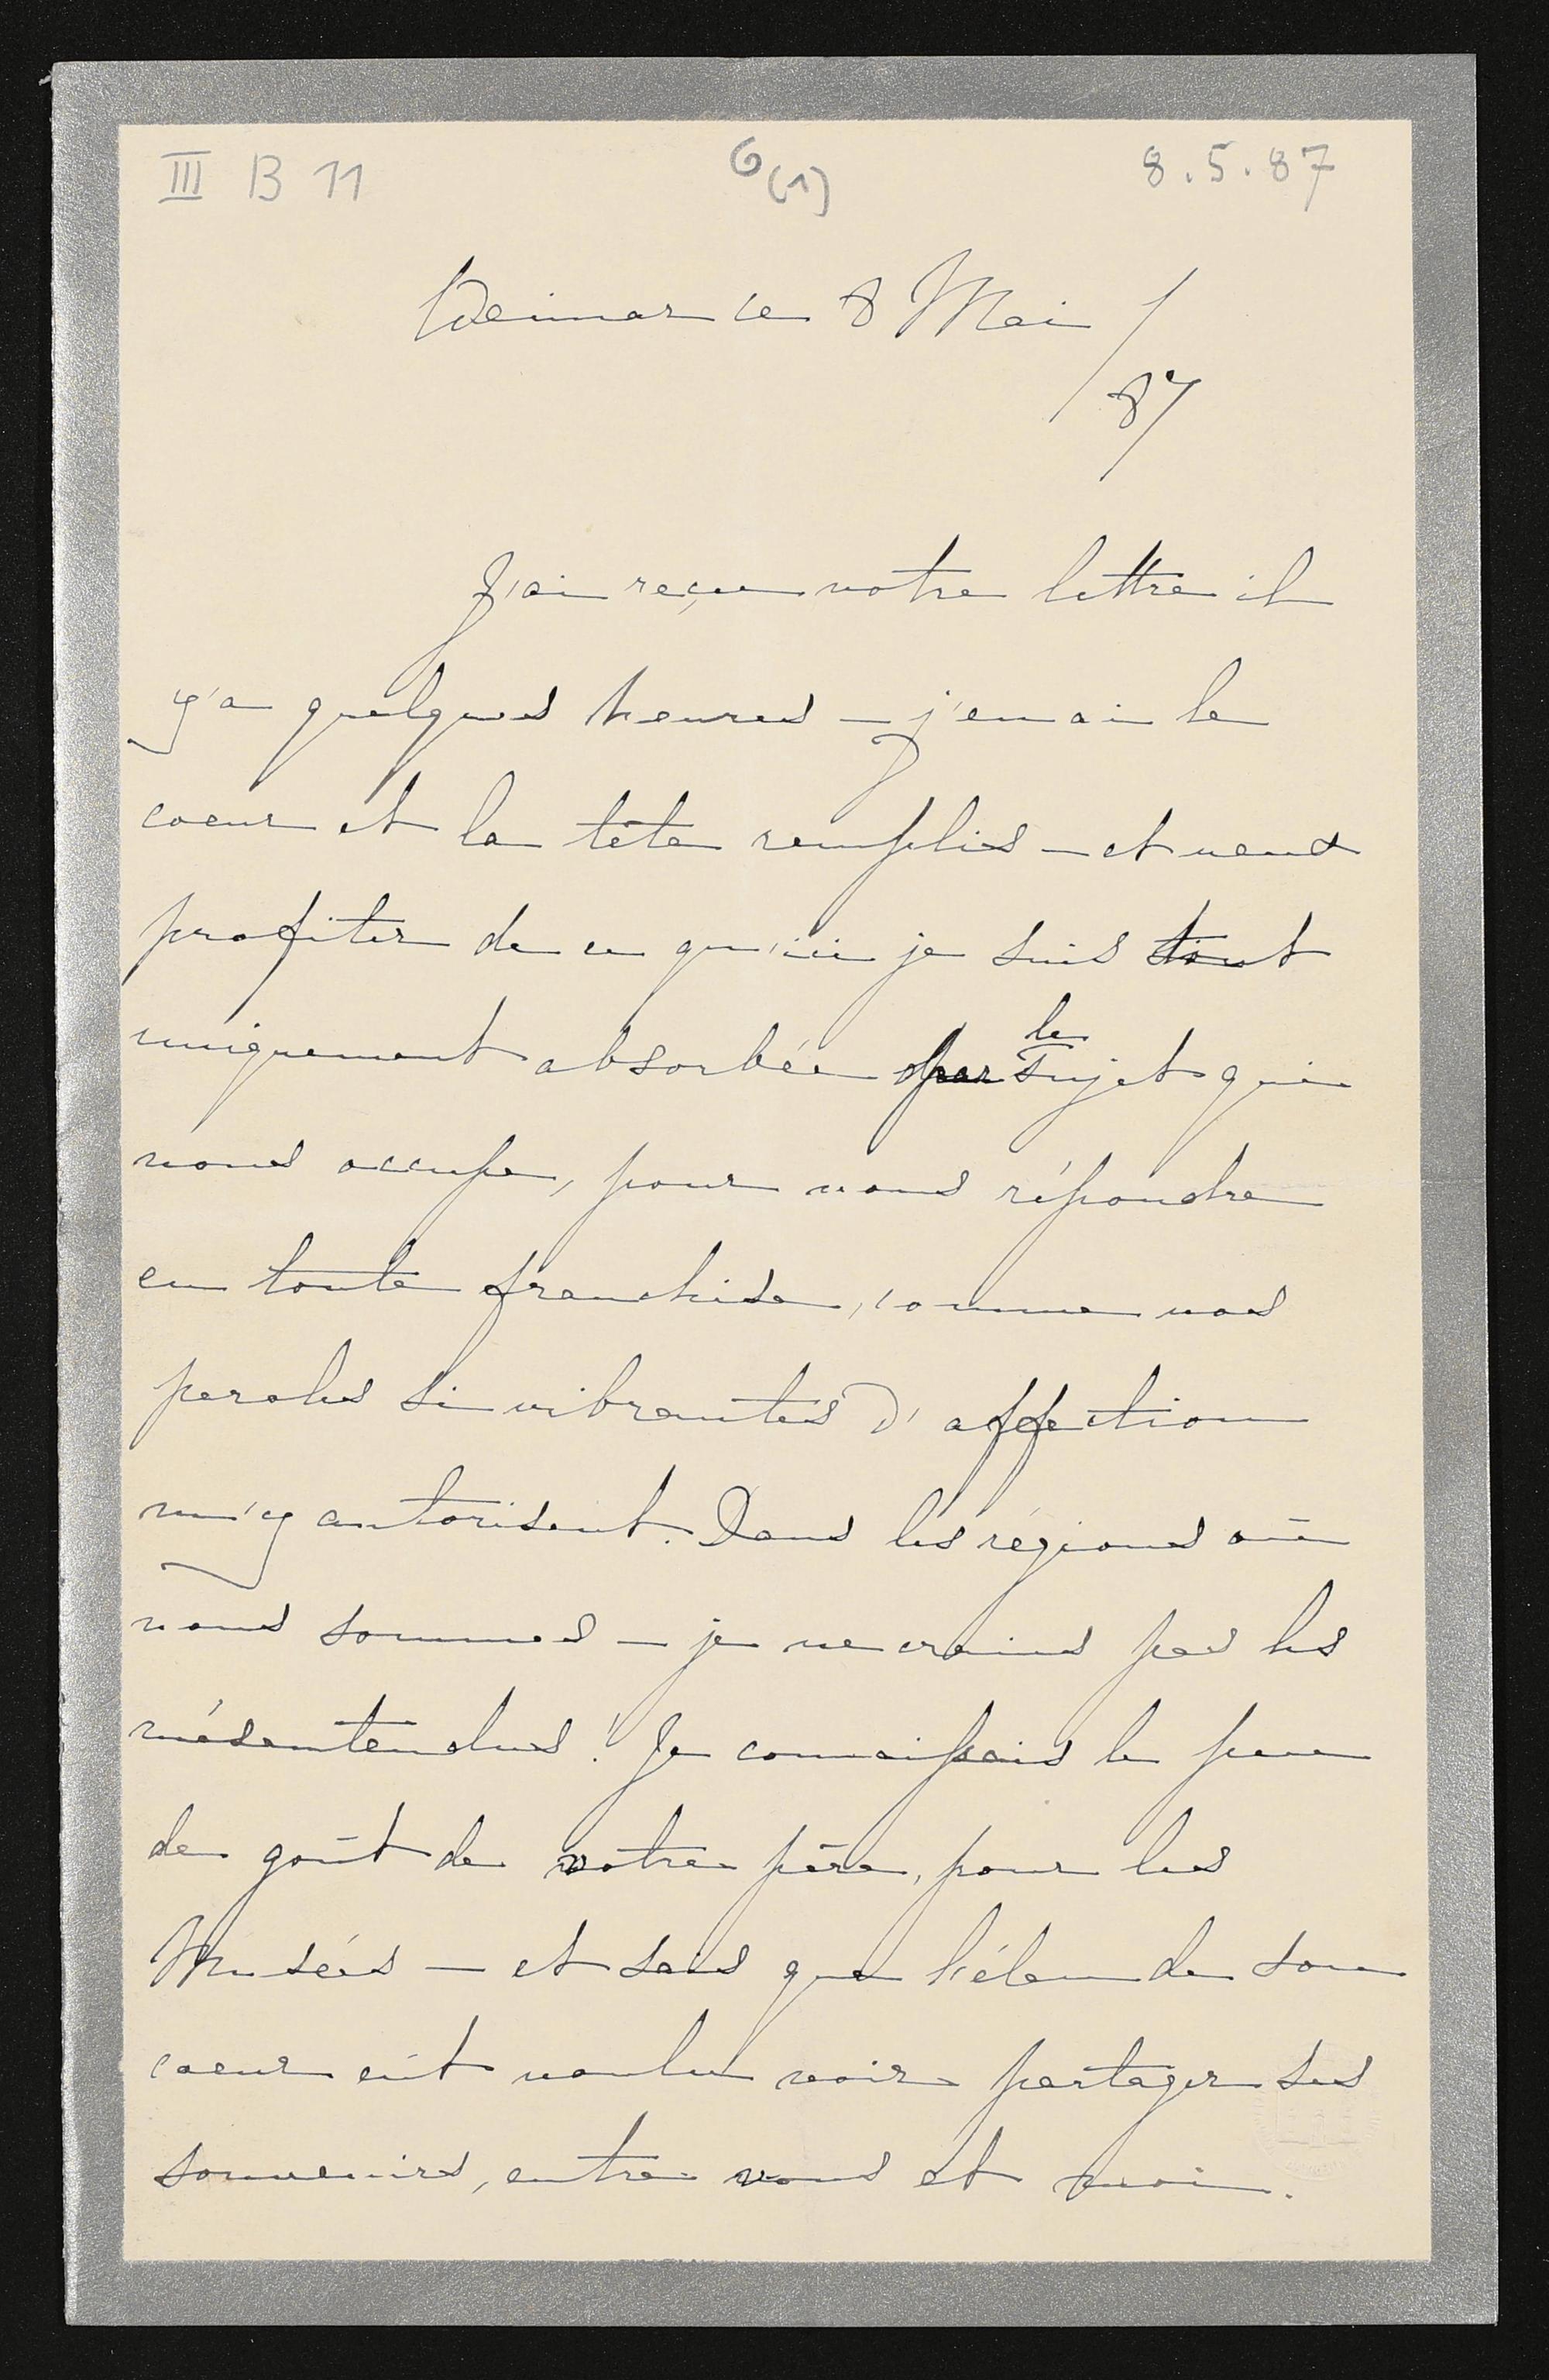 III B 11
6(1)
8.5.87
Weimar ce 8 Mai /
87
J'ai reçu votre lettre il
y'a quelques heures – j'en ai le
coeur et la tête remplis – et veux
profiter de ce qu'ici je suis tout
uniquement absorbée par le sujet qui
nous occupe, pour vous répondre
en toute franchise, comme vos
paroles si vibrantes d'affection
m'y autorisent. Dans les régions où
nous sommes – je ne crains pas les
mésentendus! Je connaissais le peu
de goût de votre père, pour les
Musées – et sais que l'élan de son
coeur eût voulu voir partager ses
souvenirs, entre vous et moi.